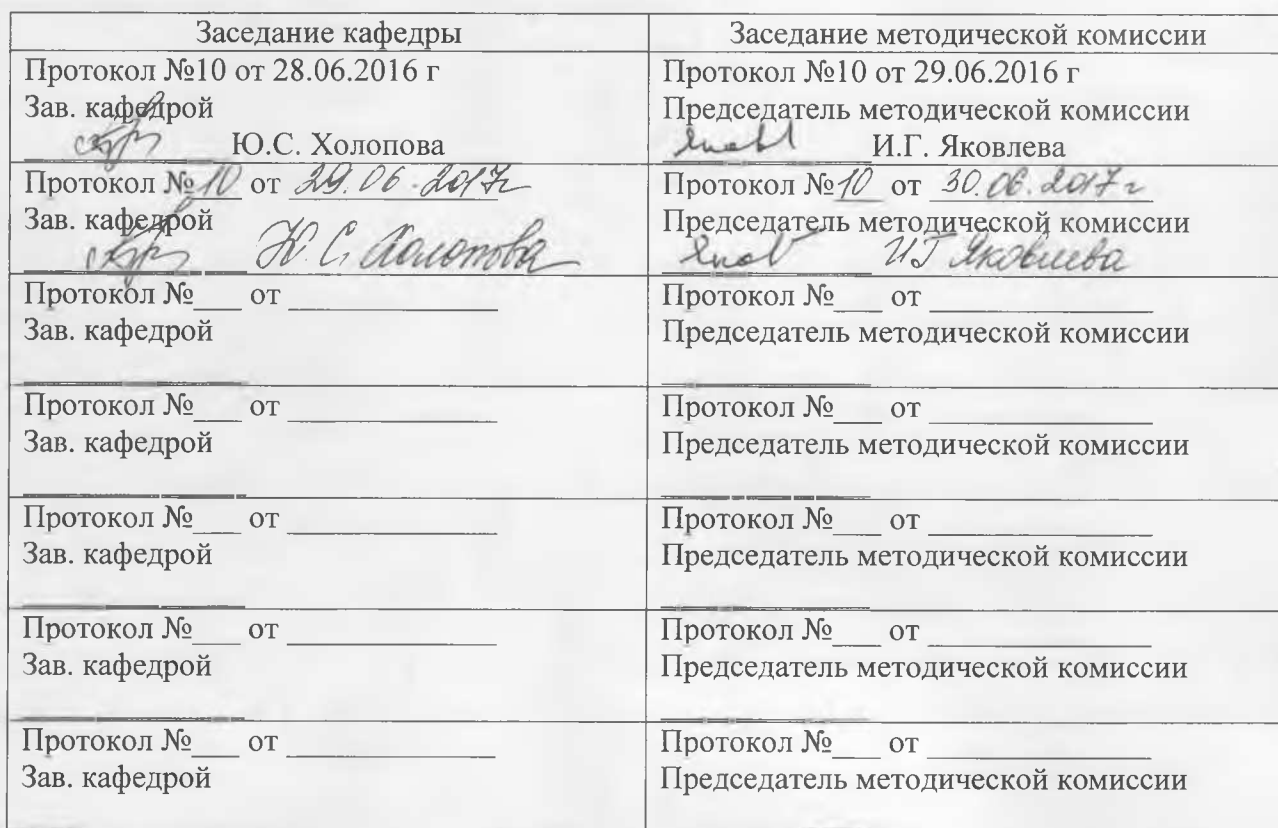 Заседание кафедры
Заседание методической комиссии
Протокол №10 от 28.06.2016 г
Зав. кафедрой
Ю.С. Холопова
Протокол №10 от 29.06.2016 г
Председатель методической комиссии
И.Г. Яковлева
Протокол №10 от 29.06.2017г
Зав. кафедрой
Ю.С. Холопова
Протокол №10 от 30.06.2017 г
Председатель методической комиссии
ИГ Яковлева
Протокол №___ от ____________
Зав. кафедрой
Протокол №___ от ____________
Председатель методической комиссии
Протокол №___ от ____________
Зав. кафедрой
Протокол №___ от ____________
Председатель методической комиссии
Протокол №___ от ____________
Зав. кафедрой
Протокол №___ от ____________
Председатель методической комиссии
Протокол №___ от ____________
Зав. кафедрой
Протокол №___ от ____________
Председатель методической комиссии
Протокол №___ от ____________
Зав. кафедрой
Протокол №___ от ____________
Председатель методической комиссии